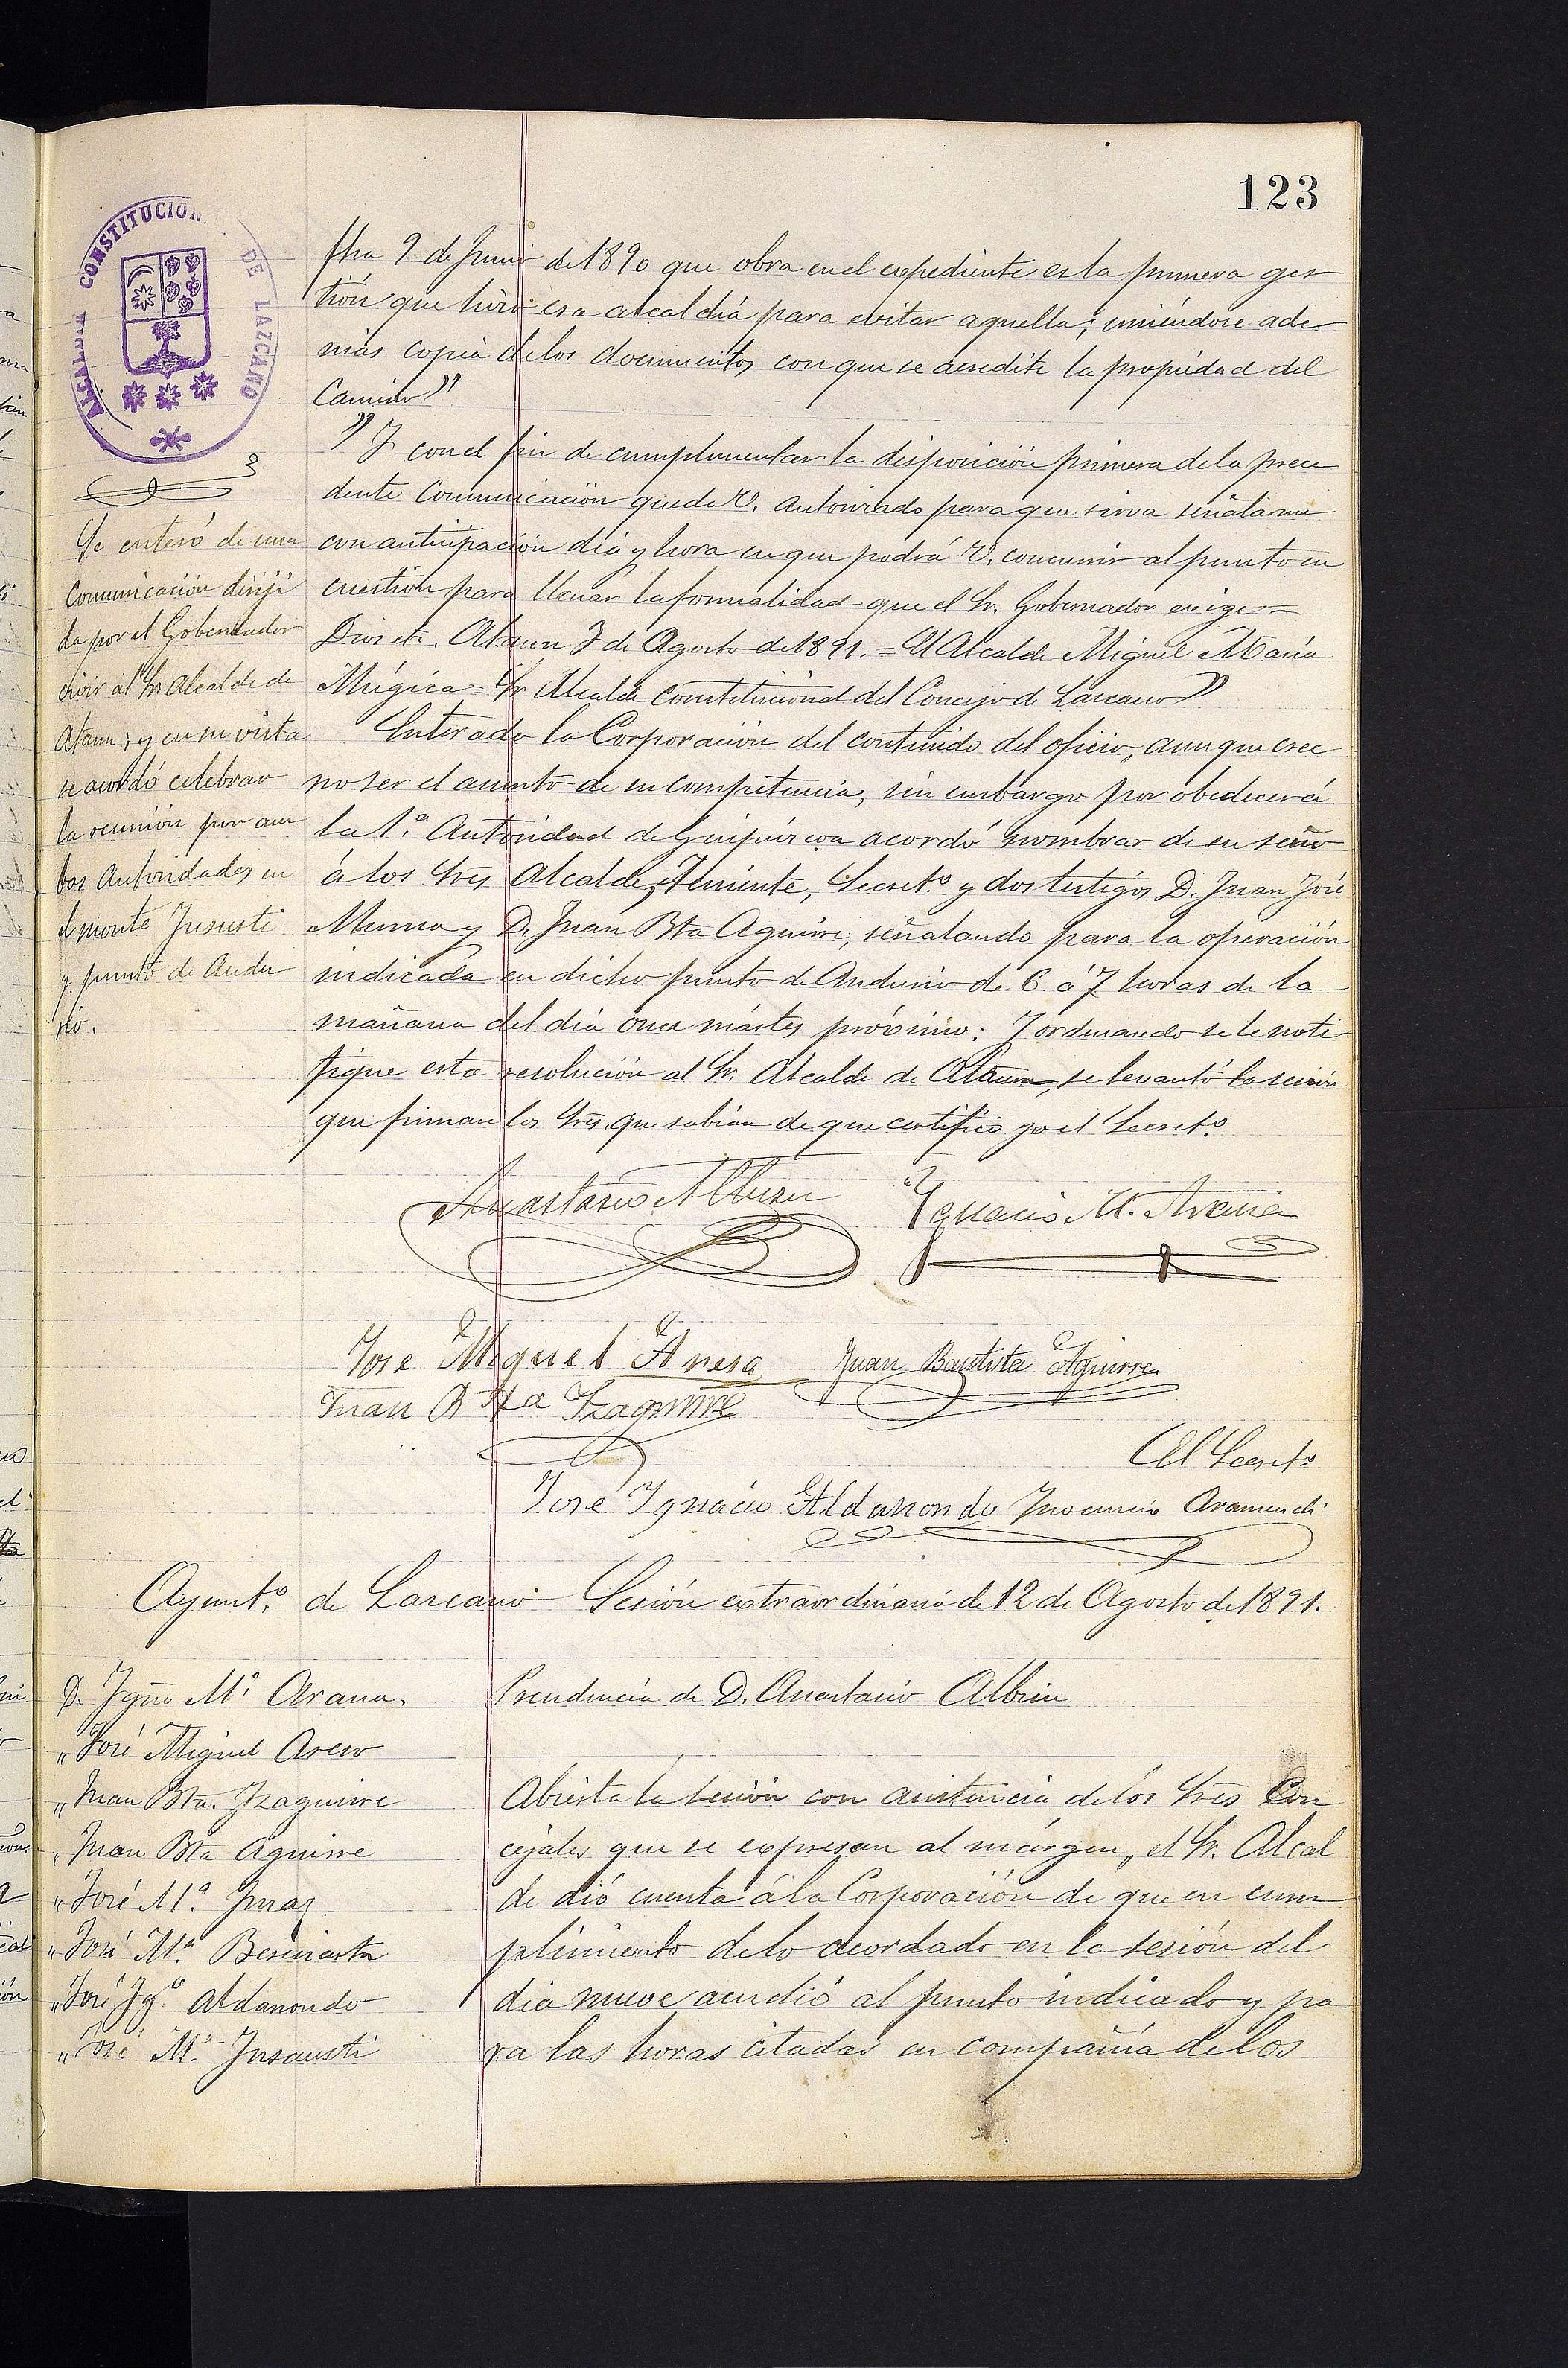 123
ALCALDIA CONSTITUCION DE LAZCANO
fha 9 de Junio de 1890 que obra en el expediente es la primera ges
tión que hizo esa alcaldiá para evitar aquella; uniéndose ade
más copia de los documentos con que se acredite la propiedad del
Camino"
"Y con el fin de cumplimentar la disposición primera de la prece
dente Comunicación queda V. autorizado para que sirva señalarme
con anticipación diá y hora en que podrá V. concurrir al punto en
cuestión para llenar la formalidad que el Sr. Gobernador exige=
Dios etc. Ataun 7 de Agosto de 1891.= El Alcalde Miguel Maria
Múgica= Sr Alcalde constitucional del Concejo de Lazcano"
Enterado la Corporación del contenido del oficio, aunque cree
no ser el asunto de su competencia, sin embargo por obedecer á
la 1ª Autoridad de Guipúzcoa acordó nombrar de su seno
á los Sres Alcalde, Teniente, Secretº y dos testigos D. Juan José
Munoa y D. Juan Bta Aguirre, señalando para la operación
indicada en dicho punto de de 6 á 7 horas de la
mañana del diá once mártes próximo: Y ordenando se le noti
fique esta resolución al Sr. Alcalde de Ataun, se levantó la sesión
que firman los Sres. que sabian de que certifico yo el Secretº
Se enteró de una
Comunicación diriji
da por el Gobernador
civir al Sr Alcalde de
Ataun; y en su vista
se acordó celebrar
la reunión por am
bas Autoridades en
el monte Jususti
y punto de
Anastasio Albizu
Ygnacio M. Arana
Jose Miguel Aresa
Juan Bautista Aguirre
Juan Bta Yzaguirre
El Secretº
José Ygnacio Aldanondo
Inocencio Aramendi
Ayuntº de Lazcano Sesión extraordinaria de 12 de Agosto de 1891.
D. Ygno Mª Arana.
" José Miguel Areso
" Juan Bta. Yzaguirre
" Juan Bta Aguirre
" José Mª
" José Mª
" José Ygº Aldanondo
" José Mª Insausti
Presidencia de D. Anastasio Albizu
Abierta la sesión con asistencia de los Sres Con
cejales que se expresan al márgen, el Sr. Alcal
de dió cuenta á la Corporación de que en cum
plimiento de lo acordado en la sesión del
dia nueve acudió al punto indicado y pa
ra las horas citadas en compañiá de los